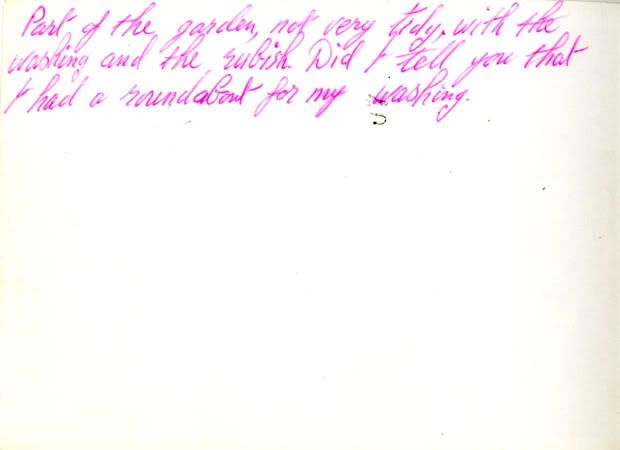 Part of the garden, not very tidy, with the
washing and the rubish. Did I tell you that
I had a roundabout for my washing.